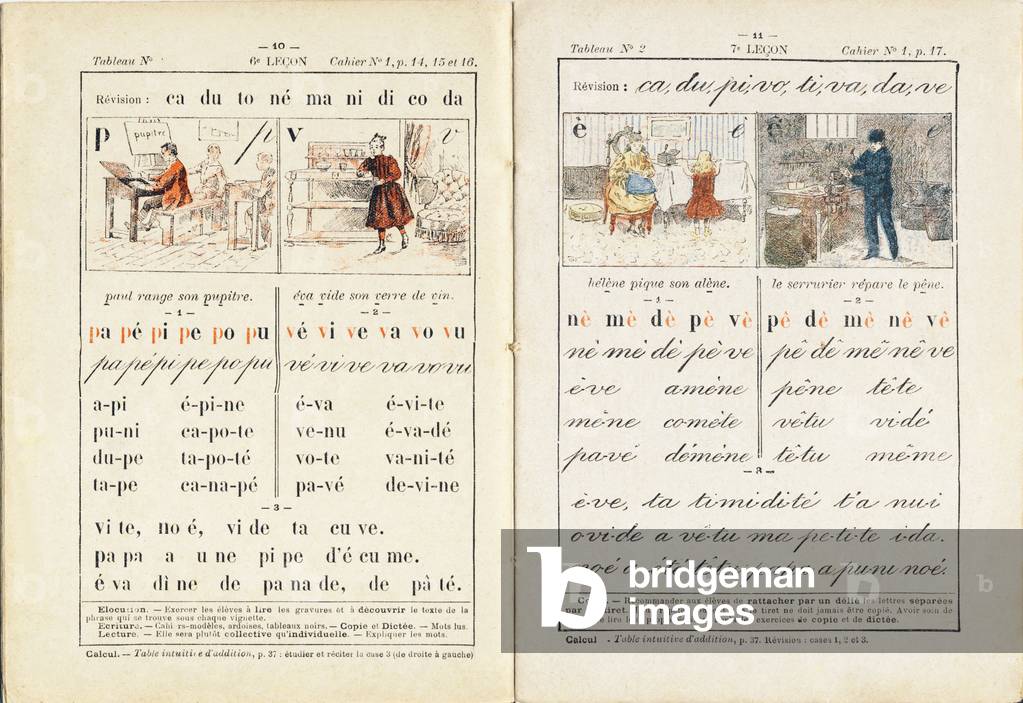 — 10 —
Tableau No 6e LEÇON Cahier No 1, p. 14, 15 et 16.
Révision : ca du to né ma ni di co da
p pupitre p v v
paul range son pupitre. éva vide son verre de vin.
— 1 — — 2 —
pa pé pi pe po pu vé vi ve va vo vu
pa pé pi pe po pu vé vi ve va vo vu
a-pi é-pi-ne é-va é-vi-te
pu-ni ca-po-te ve-nu é-va-dé
du-pe ta-po-té vo-te va-ni-té
ta-pe ca-na-pé pa-vé de-vi-ne
— 3 —
vi te, no é, vi de ta cu ve.
pa pa a u ne pi pe d'é cu me.
é va dî ne de pa na de, de pâ té.
Elocution. — Exercer les élèves à lire les gravures et à découvrir le texte de la
phrase qui se trouve sous chaque vignette.
Ecriture. — Cahi rs-modèles, ardoises, tableaux noirs. — Copie et Dictée. — Mots lus.
Lecture. — Elle sera plutôt collective qu'individuelle. — Expliquer les mots.
Calcul. — Table intuitive d'addition, p. 37 : étudier et réciter la case 3 (de droite à gauche)
— 11 —
Tableau No 2 7e LEÇON Cahier No 1, p. 17.
Révision : ca, du, pi, vo, ti, va, da, ve
è è ê ê
hélène pique son alène. le serrurier répare le pêne.
— 1 — — 2 —
nè mè dè pè vè pê dê mê nê vê
nè mè dè pè ve pê dê mê nê ve
è-ve a-mè-ne pê-ne tê-te
mè-ne co-mè-te vê-tu vi-dé
pa-vé dé-mè-ne tê-tu mê-me
— 3 —
è-ve, ta ti-mi-di-té t'a nu-i
o-vi-de a vê-tu ma pe-ti-te i-da.
noé a été têtu, papa a puni noé.
— Recommander aux élèves de rattacher par un délié les lettres séparées
par tiret. tiret ne doit jamais être copié. Avoir soin de
lire exercices de copie et de dictée.
Calcul - Table intuitive d'addition, p. 37. Révision : cases 1, 2 et 3.
b bridgeman
images